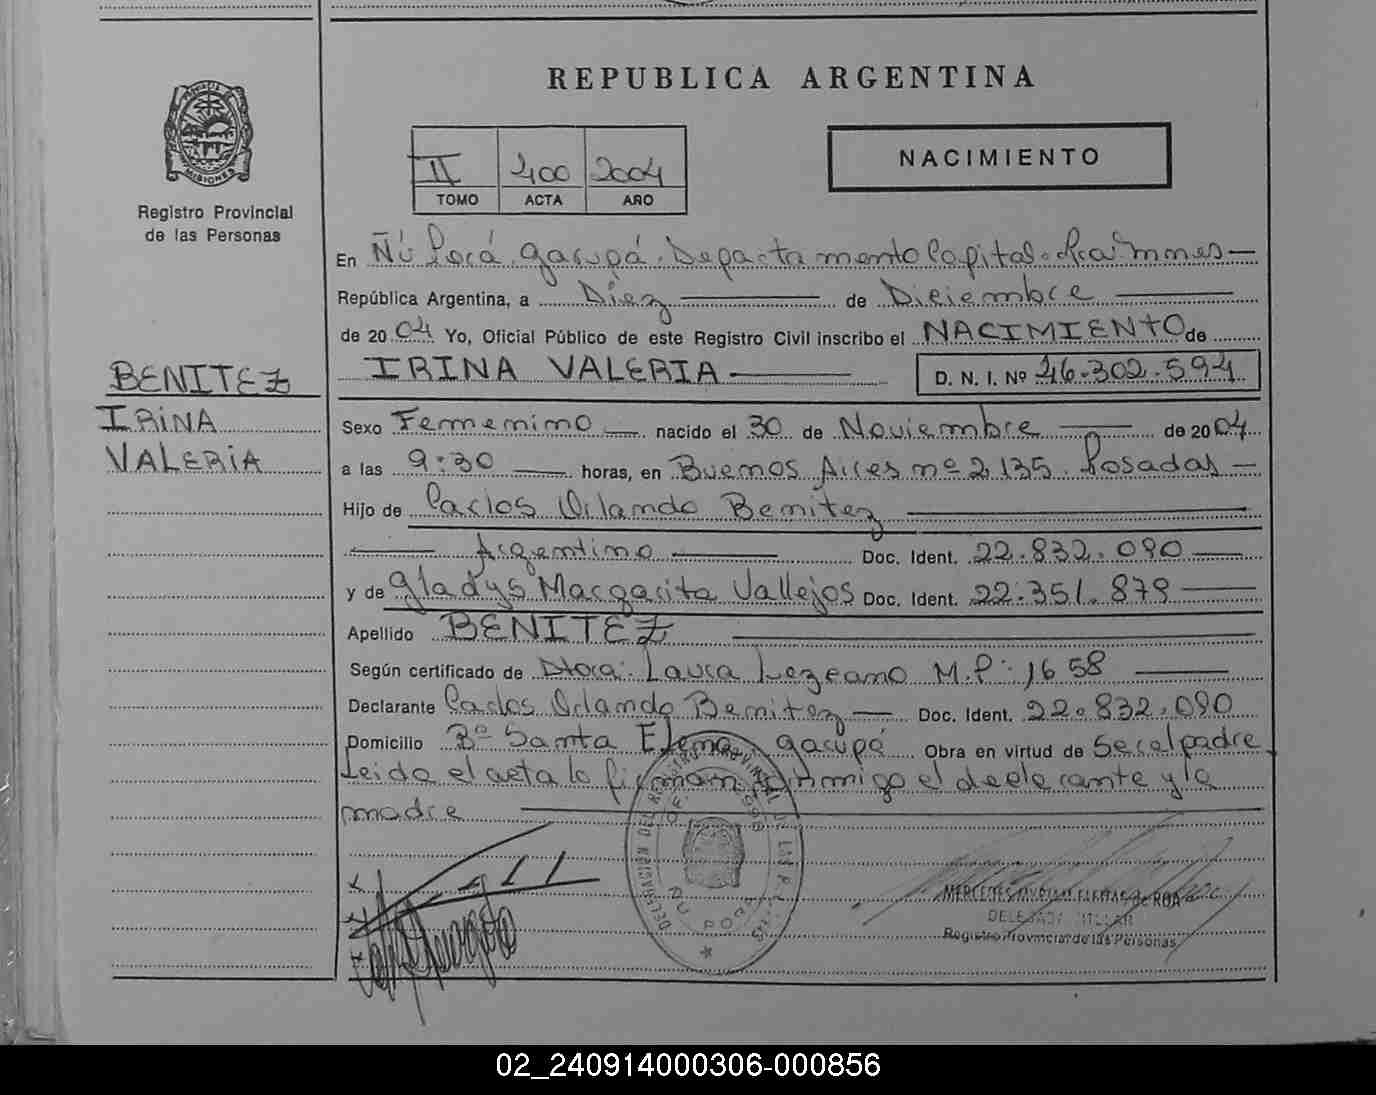 REPUBLICA ARGENTINA
PROVINCIA DE MISIONES
Registro Provincial
de las Personas
II 400 2004
TOMO ACTA AÑO
NACIMIENTO
En Ñu Porá. Garupá. Departamento Capital. Misiones
República Argentina, a Diez de Diciembre
de 2004 Yo, Oficial Público de este Registro Civil inscribo el NACIMIENTO de
IRINA VALERIA D. N. I. Nº 46.302.594
BENITEZ
IRINA
VALERIA
Sexo Femenino nacido el 30 de Noviembre de 2004
a las 9:30 horas, en Buenos Aires nº 2135. Posadas
Hijo de Carlos Orlando Benitez
Argentino Doc. Ident. 22.832.090
y de Gladys Margarita Vallejos Doc. Ident. 22.351.879
Apellido BENITEZ
Según certificado de Dtora: Laura Lezcano M.P: 1658
Declarante Carlos Orlando Benitez Doc. Ident. 22.832.090
Domicilio Bº Santa Elena. Garupá Obra en virtud de Ser el padre
Leida el acta la firman conmigo el declarante y la
madre
DELEGACION DEL REGISTRO PROVINCIAL DE LAS
ÑU PORA
MERCEDES DE ROA
DELEGADA TITULAR
Registro Provincial de las Personas
02_240914000306-000856